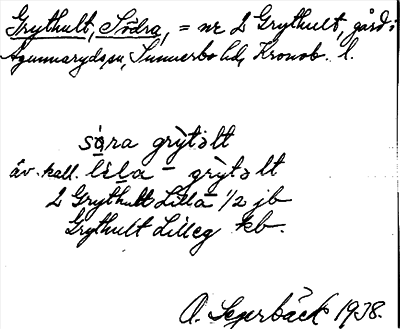 Grythult, Södra, = nr 2 Grythult, gård i
Agunnaryds sn, Sunnerbo hd, Kronob. l.
söra grỳtəlt
äv. kall. lìla - grỳtəlt
2 Grythult Lilla 1/2 jb
Grythult Lilleg kb.
O. Segerbäck 1938.